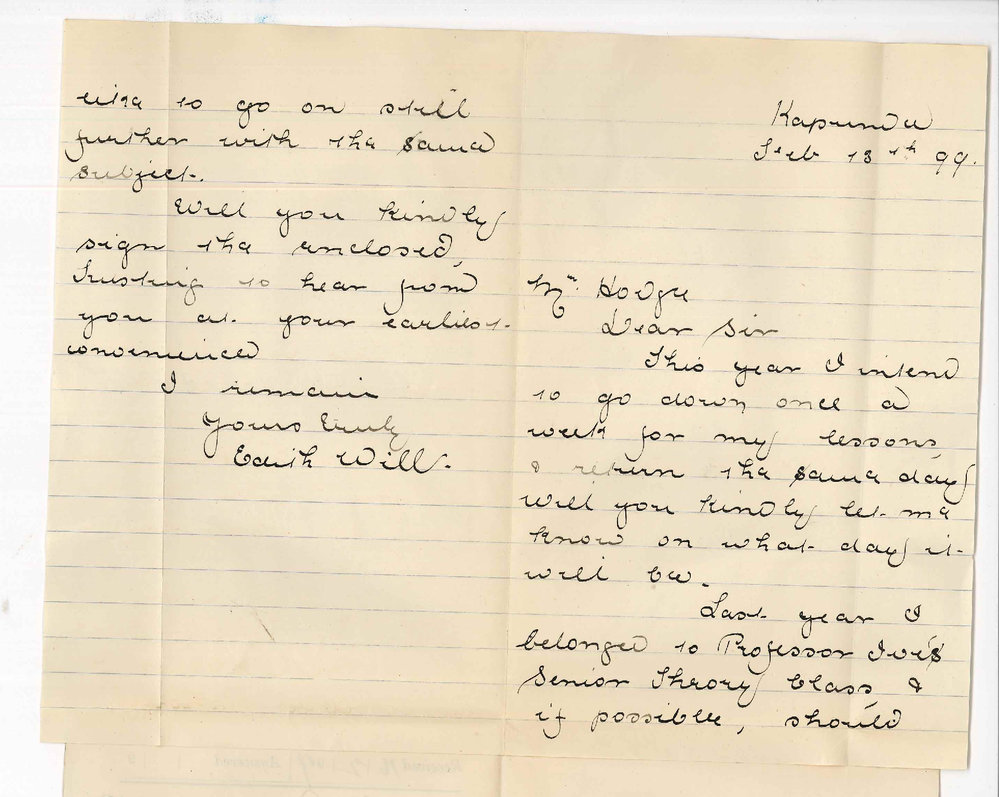 Kapunda
Feb 13th 99.
Mr. Hodge
Dear Sir
This year I intend
to go down once a
week for my lessons,
& return the same day
will you kindly let me
know on what day it
will be.
Last year I
belonged to Professor Ive's
Senior Theory Class, &
if possible, should
like to go on still
further with the same
subject.
Will you kindly
sign the enclosed,
Trusting to hear from
you at your earliest
convenience
I remain
Yours truly
Edith Will.